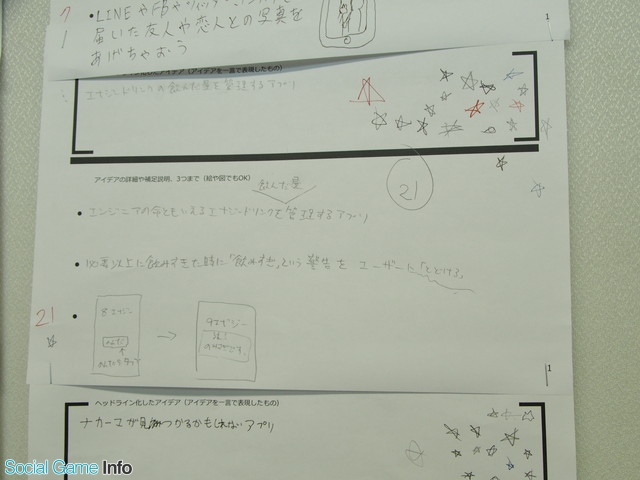 • LINEやFBや
届いた友人や恋人との写真を
あげちゃおう
アイデア（アイデアを一言で表現したもの）
エナジードリンクの飲んだ量を管理するアプリ
アイデアの詳細や補足説明、3つまで（絵や図でもOK）
飲んだ量
21
• エンジニアの命ともいえるエナジードリンクを管理するアプリ
• 必要以上に飲みすぎた時に「飲みすぎ」という警告をユーザーに「とどける」
21
•
→
1
1
ヘッドライン化したアイデア（アイデアを一言で表現したもの）
ナカーマが見つかるかもしれないアプリ
Social Game Info